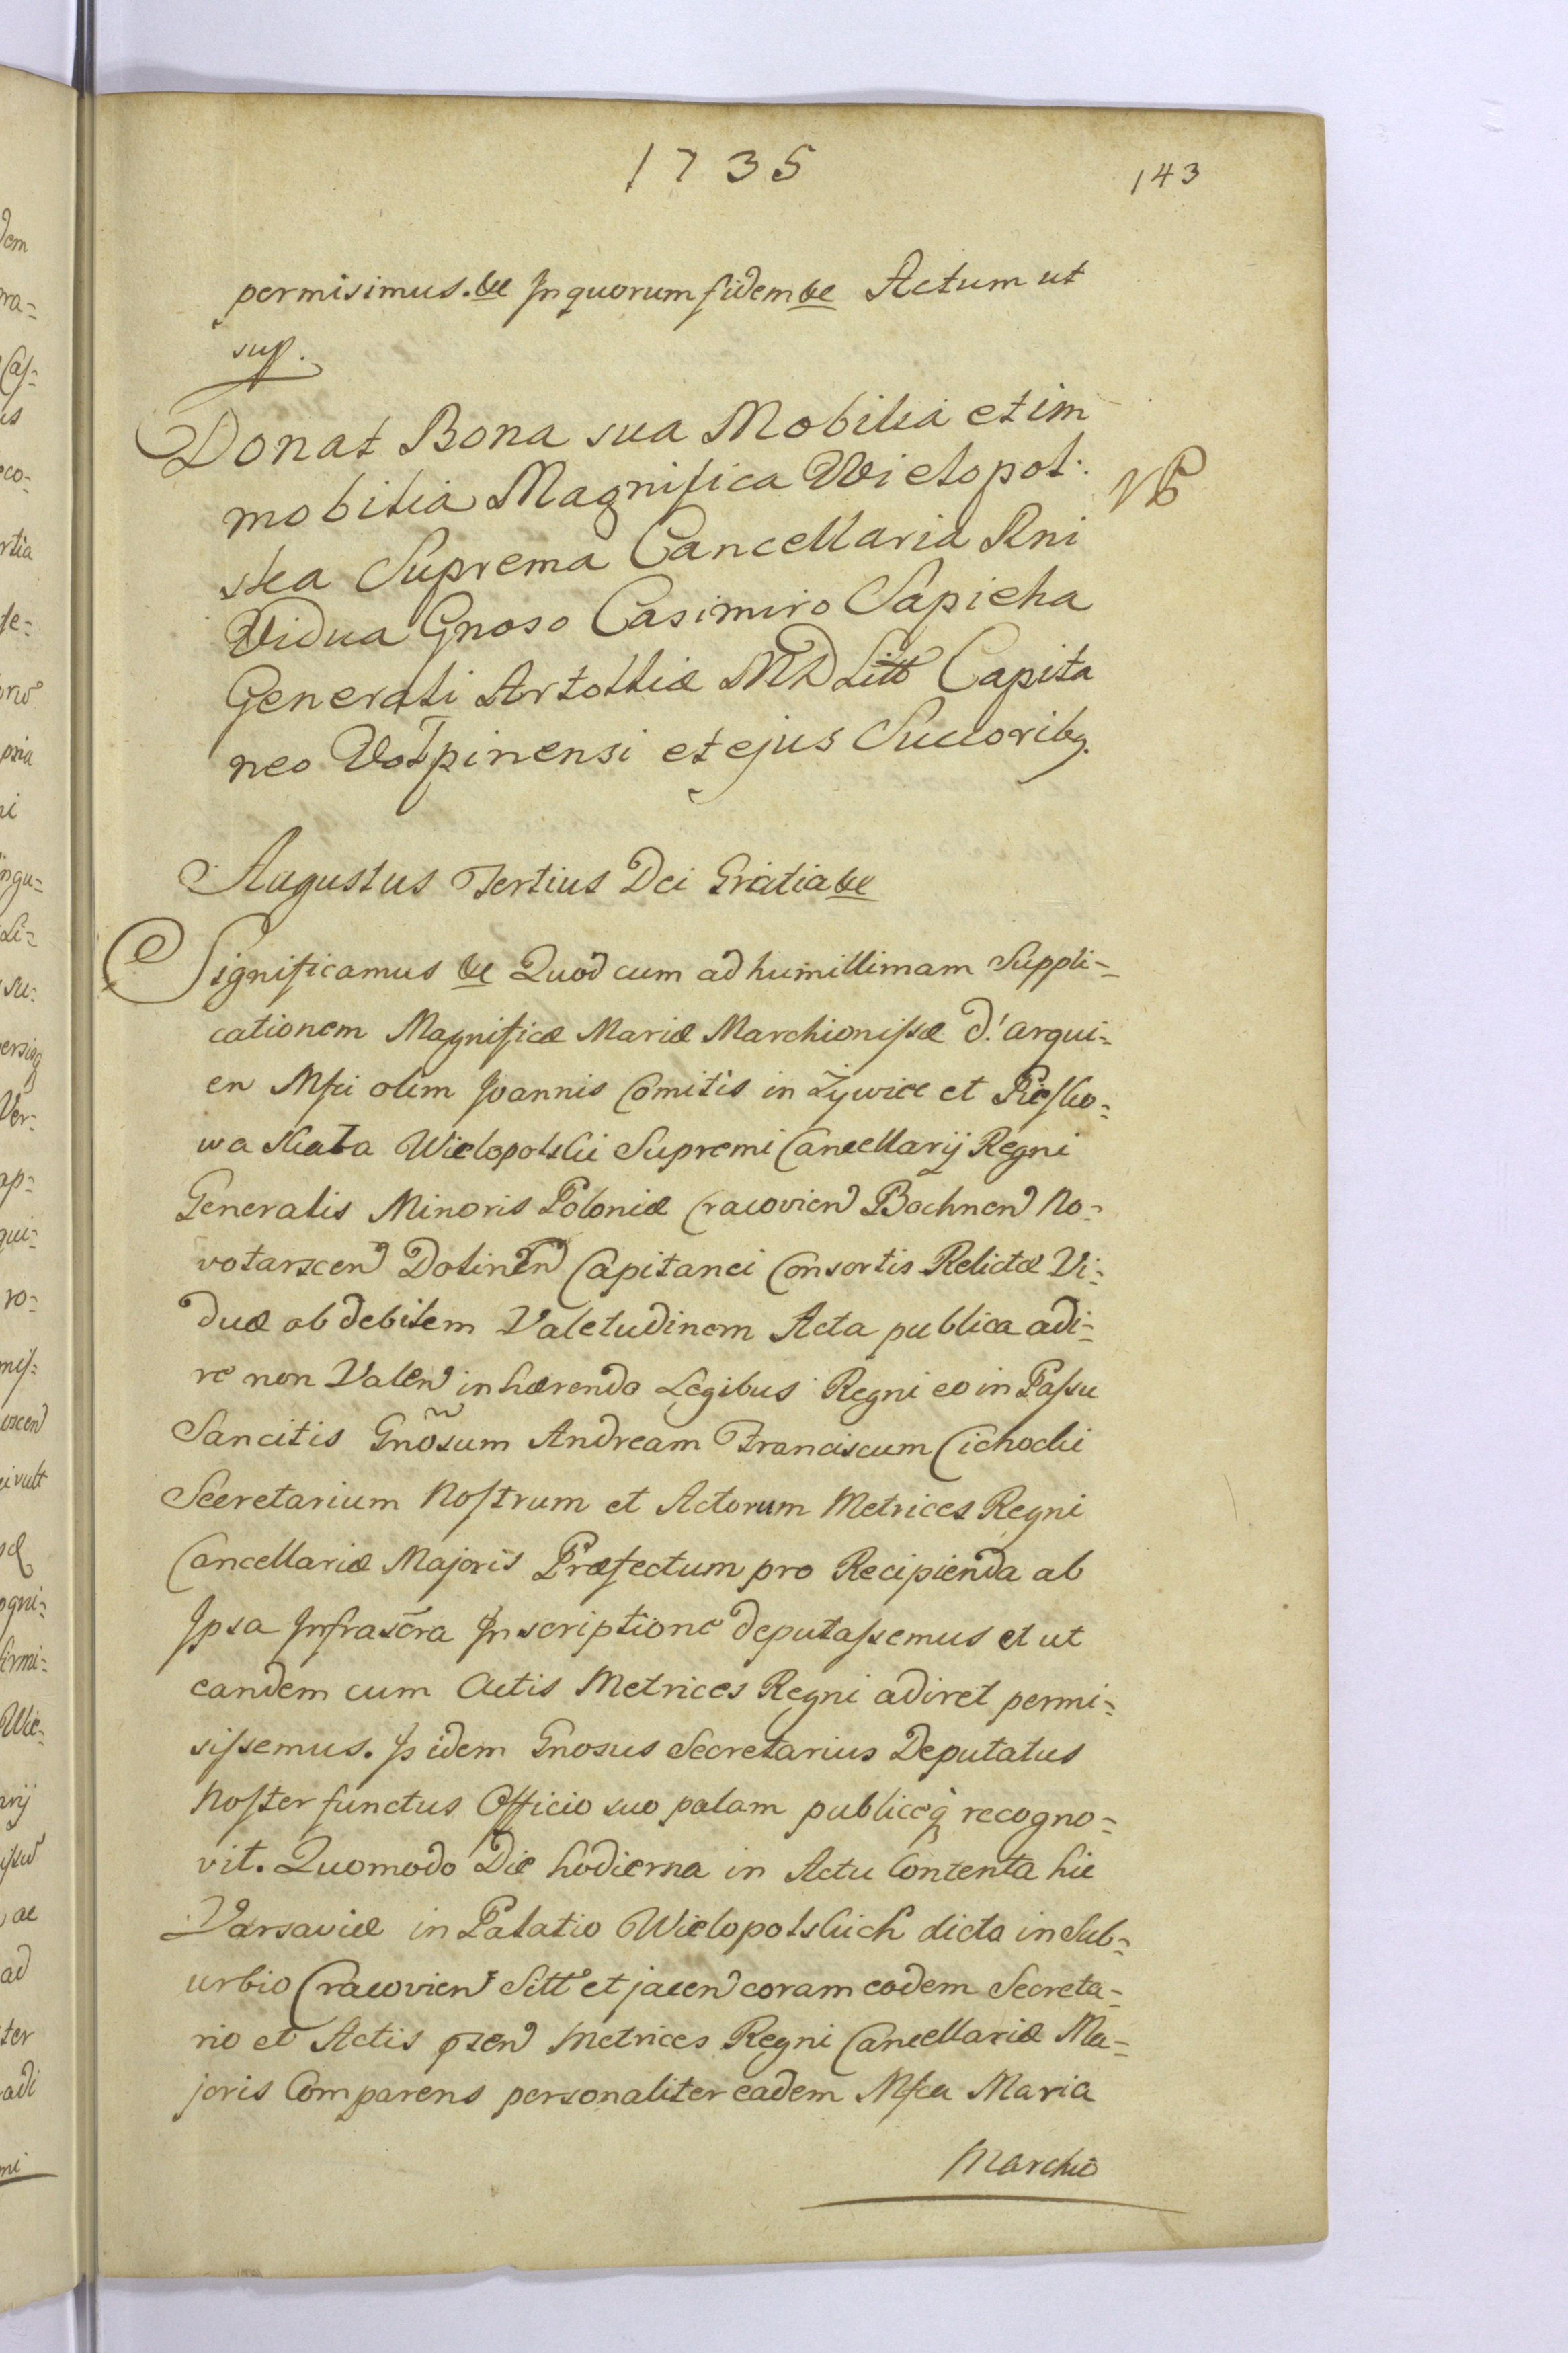 1735
143
permisimus. &c Jn quorum fidem &c Actum ut
sup.
Donat Bona sua Mobilia et im
mobilia Magnifica Wielopol:
ska Suprema Cancellaria Rni
Vidua Gnoso Casimiro Sapieha
Generali Artolliæ MD Litt Capita
neo Wołpinensi et ejus Succoribq.
NB
Augustus Tertius Dei Gratia &c
Significamus &c Quod cum ad humillimam Suppli=
cationem Magnificæ Mariæ Marchionissæ d'arqui=
en Mfci olim Joannis Comitis in Zywiec et Piesko=
wa Skała Wielopolski Supremi Cancellarij Regni
Generalis Minoris Poloniæ Cracovien Bochnen No=
votarscen Dolinen Capitanei Consortis Relictæ Vi=
duæ ob debilem Valetudinem Acta publica adi=
re non Valen inhærendo Legibus Regni eo in Passu
Sancitis Gnõsum Andream Franciscum Cichocki
Secretarium Nostrum et Actorum Metrices Regni
Cancellariæ Majoris Præfectum pro Recipienda ab
Jpsa Jnfrascra Jnscriptione deputassemus et ut
eandem cum Actis Metrices Regni adiret permi=
sissemus. Js idem Gnosus Secretarius Deputatus
Noster functus Officio suo palam publiceq recogno=
vit. Quomodo Die hodierna in Actu Contenta hic
Varsaviæ in Palatio Wielopolskich dicto in Sub=
urbio Cracovien Sitt et jacen coram eodem Secreta=
rio et Actis pszen Metrices Regni Cancellariæ Ma=
joris Comparens personaliter eadem Mfca Maria
Marchio